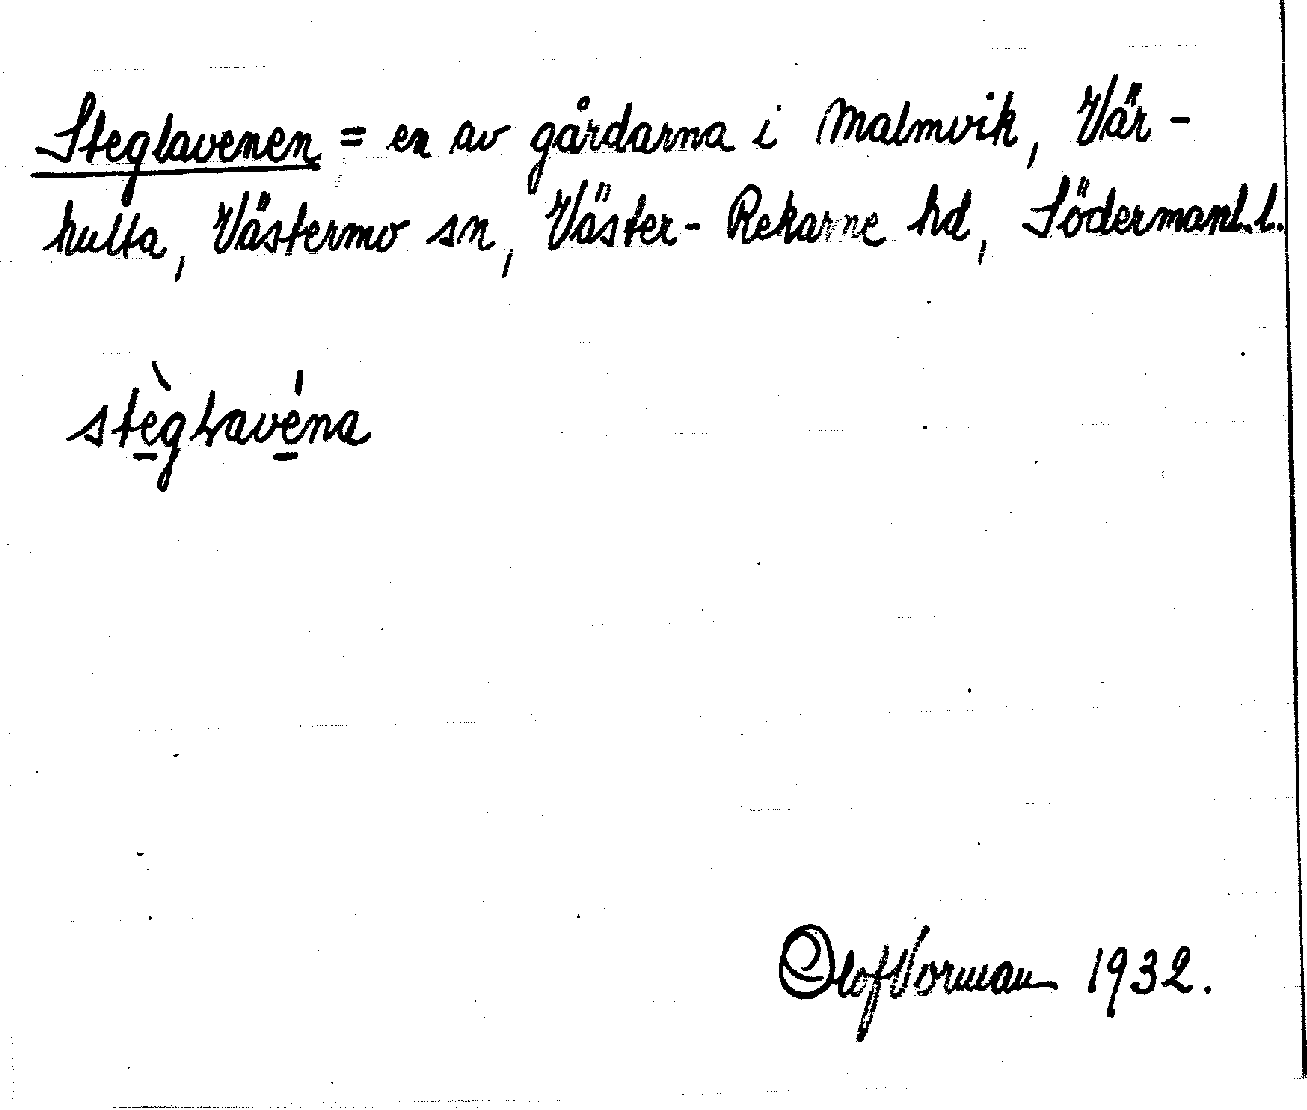 Steglavenen = en av gårdarna i Malmvik, Vår-
hulta, Västermo sn, Väster-Rekarne hd, Södermanl. l.
stèglavéna
Olof Vorman 1932.